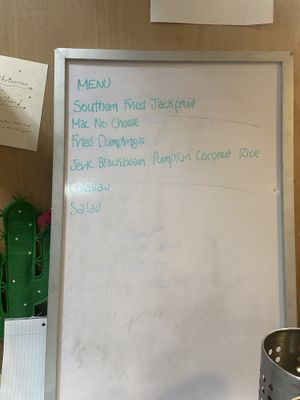 MENU
Southern Fried Jackfruit
Mac No Cheese
Fried Dumplings
Jerk Blackbean Pumpkin Coconut Rice
Coleslaw
Salad